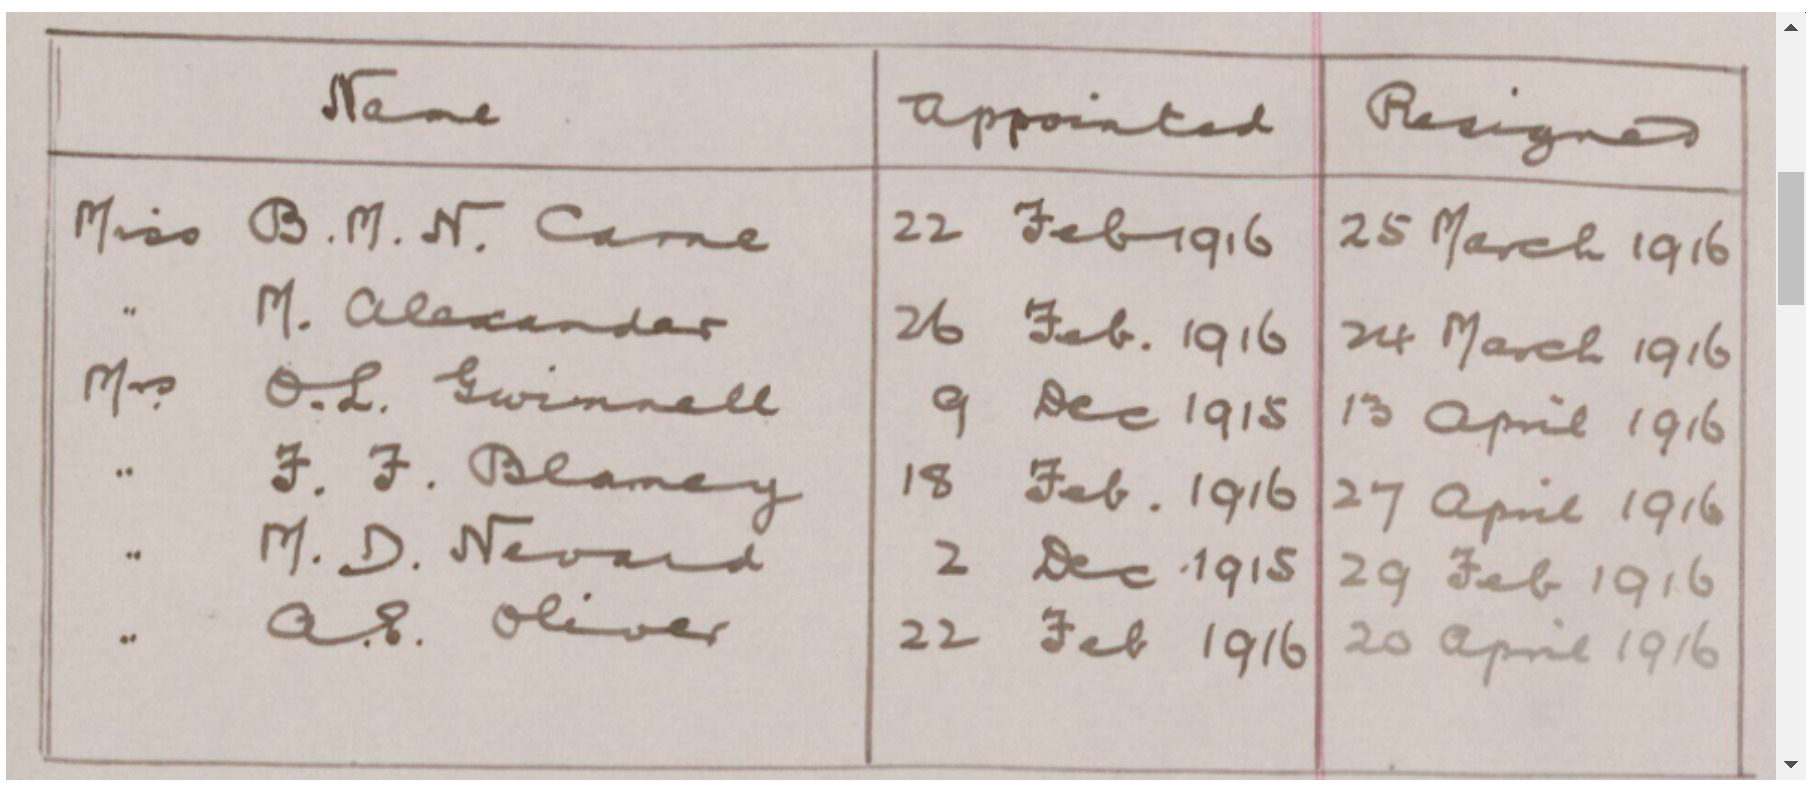 Name Appointed Resigned
Miss B. M. N. Carne 22 Feb 1916 25 March 1916
" M. Alexander 26 Feb. 1916 24 March 1916
Mrs O. L. Gwinnell 9 Dec 1915 13 April 1916
" F. F. Blamey 18 Feb. 1916 27 April 1916
" M. D. Nevard 2 Dec 1915 29 Feb 1916
" A. E. Oliver 22 Feb 1916 20 April 1916